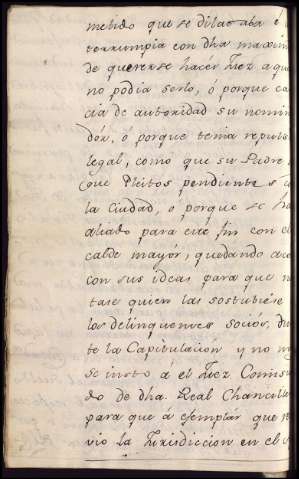 metido que se dilataba e
terrumpia con dha maxim
de quererse hacer Juez a qu
no podia serlo, ó porque ca
cia de autoridad su nomin
dór, ó porque tenia reput
legal, como que su Padre
que Pleitos pendientes
la Ciudad, ó porque se ha
aliado para este fin con el
calde mayór, quedando
con sus ideas para que
tase quien las sostubiese
los delinquentes socios,
te la Capitulación y no
se insto a el Juez Comis
do de dha. Real Chancill
para que á exemplar que
vio la Jurisdiccion en el